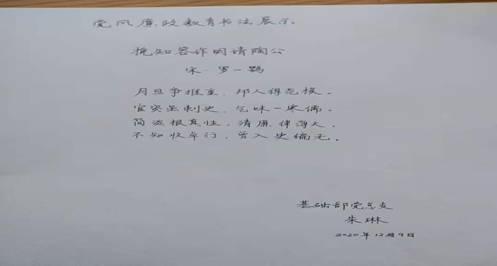 党风廉政教育书法展示
挽知容许明请陶公
宋 罗一鹗
月旦争推重，邦人得范模。
官卑**刺史，气味一**儒。
简淡根真性，清廉律薄夫。
不知收卓行，曾入史编无。
基础部党总支
朱琳
2020年12月9日